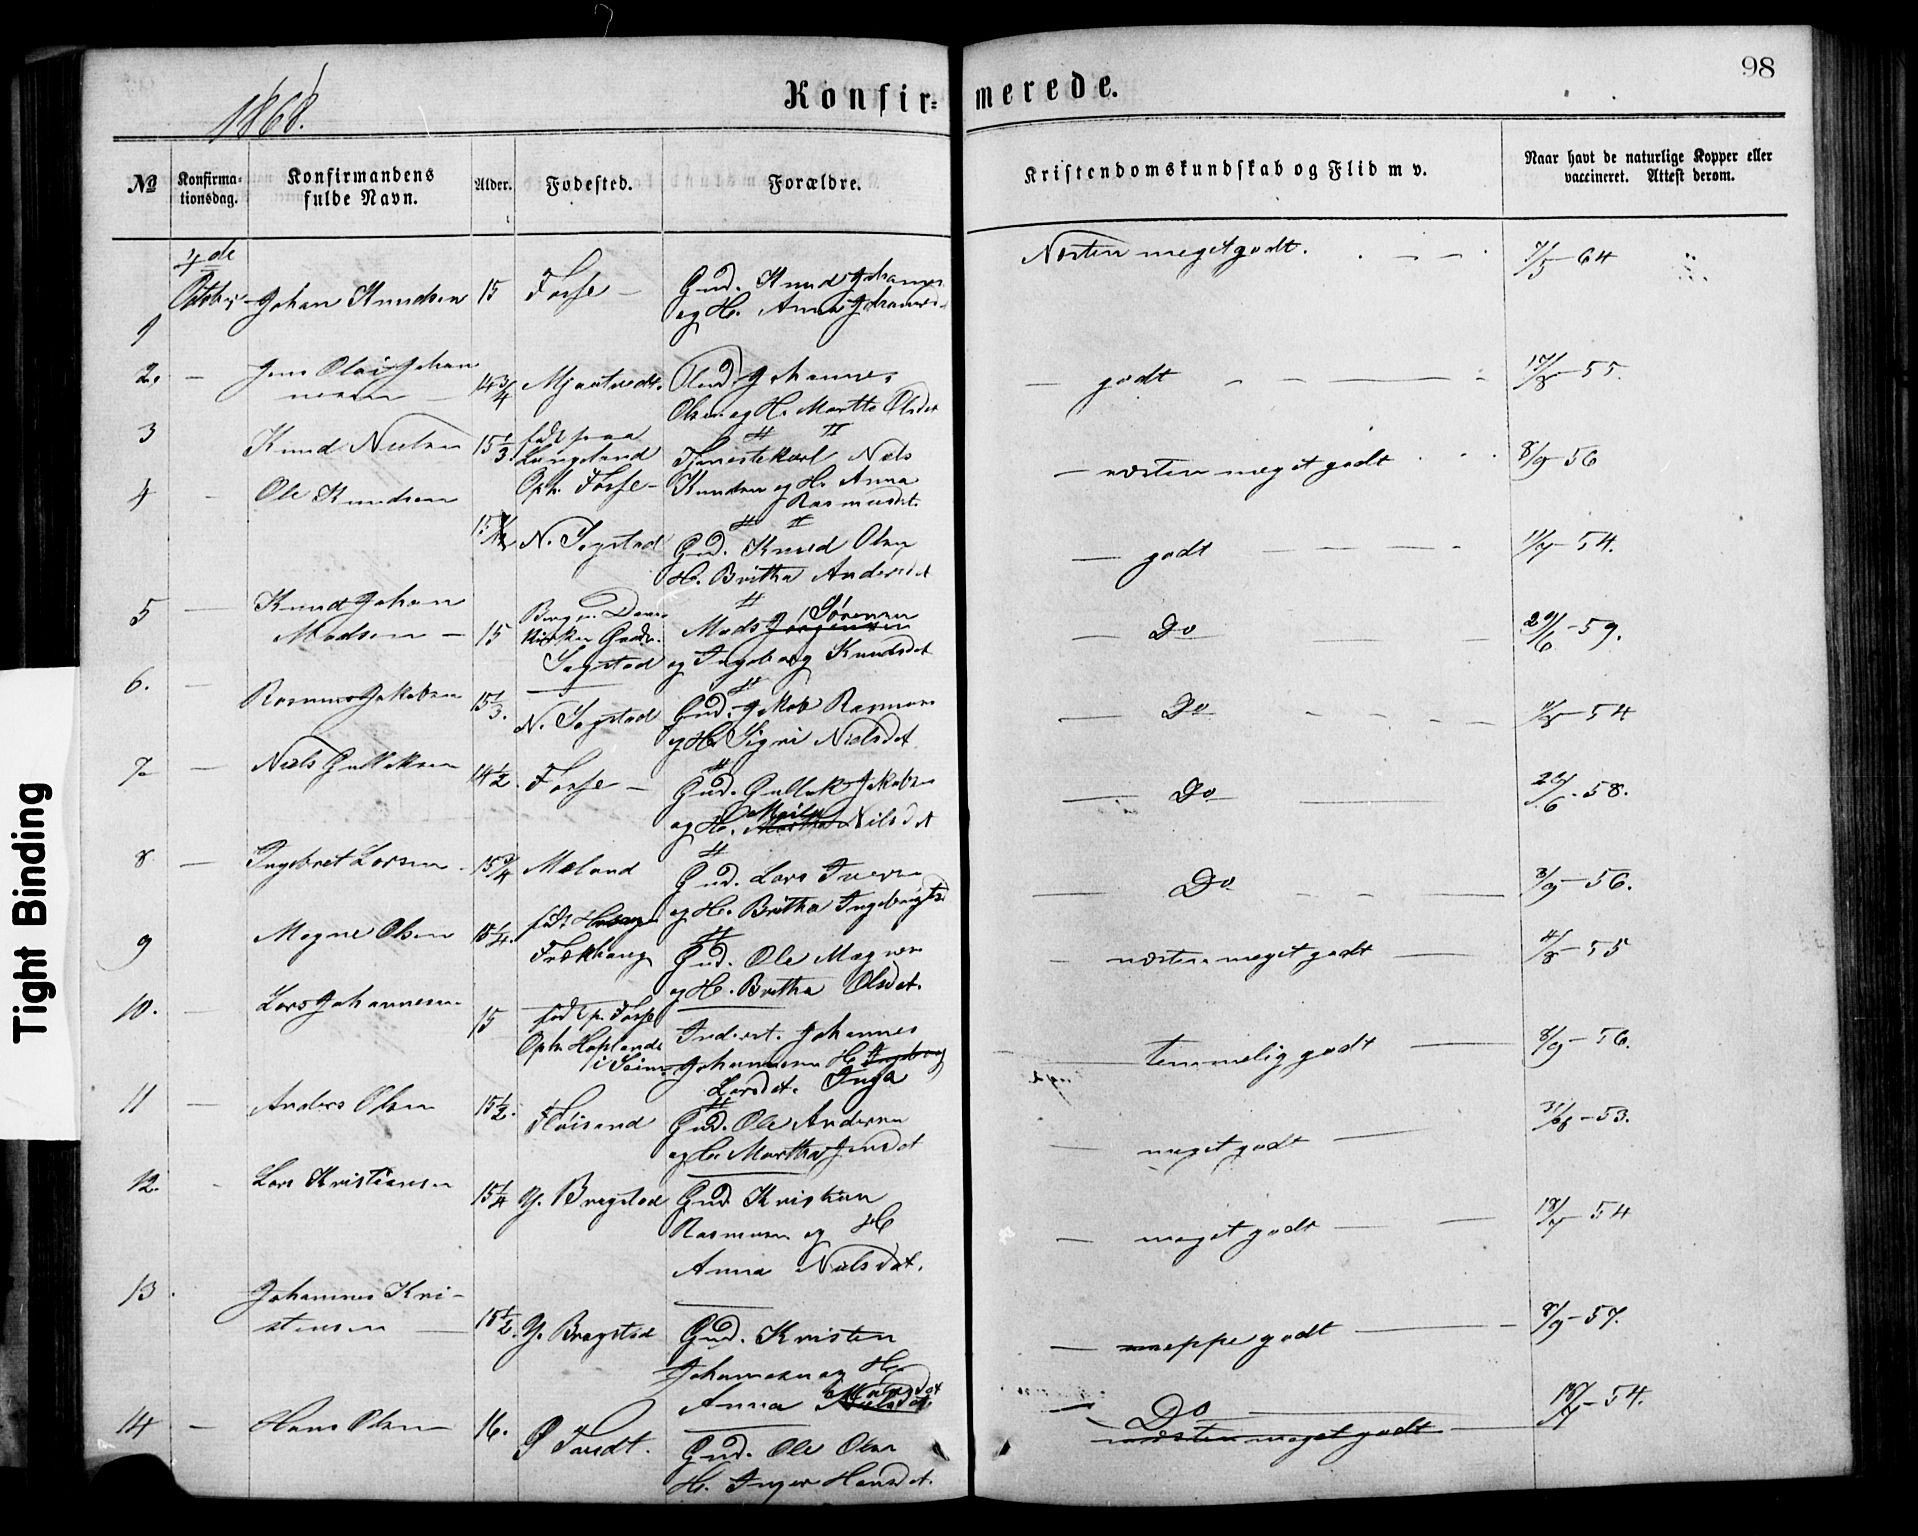 98
1868.
Konfir= merede.
№
Konfirma-
tionsdag.
Konfirmandens
fulde Navn.
Alder.
Fødested.
Forældre.
Kristendomskundskab og Flid m v.
Naar havt de naturlige Kopper eller
vaccineret. Attest derom.
4de
1 Johan Knudsen 15 Fosse – Gmd. Knud Johannes
og H. Anna Johannes
Næsten meget godt. 7/5–64
2. – Jens Olai Johan
nesen – 14 3/4 Mjaatvedt. Johannes
Olsen og H. Martha Olsdt
— godt 17/8–55.
3 Knud Nielsen 15 1/3 født paa
Langeland
Oph. Fosse – Tjenestekarl Niels
Knudsen og H. Anna
Rasmusdt.
– næsten meget godt 8/9–56
4 – Ole Knudsen 15 N. Sagstad Gmd. Knud Olsen
H. Britha Andersdt
— godt 11/7–54.
5 — Knud Johan
Madsen – 15 Bergen
Sagstad Mads Jørgensen Sørensen
og Ingeborg Knudsdt
— Do 29/6–59.
6. – Rasmus Jakobsen 15 1/3. N. Sagstad Gmd. Jakob Rasmus
og H. Sigri Nielsdt.
— Do –54
7 – Niels Gulleksen 14 1/2. Fosse – Gmd. Gullek Jakobs
og H. Martha Nilsdt
— Do 26/6–58.
8 — Ingebret Larsen 15 3/4 Mæland Gmd. Lars Iversen
og H. Britha Ingebrigts
— Do 3/9–56.
9 Magne Olsen 15 1/4. født
Frækhaug Gmd. Ole Magnesen
og H. Britha Olsdt.
– næsten meget godt — 4/8–55
10. – Lars Johannesen 15 født p. Fosse
Oph. Hopland
i Seim Inderst. Johannes
Johannesen H. Ingeborg
Larsdt. Inga
temmelig godt — 8/9–56.
11 — Anders Olsen 15 1/2. Fløisand Gmd. Ole Andersen
og H. Martha Jensdt
— meget godt — –53.
12. – Lars Kristiansen 15 1/4 Y. Bragstad Gmd Kristian
Rasmusen og H
Anna Nielsdt.
— meget godt — 18/7–54
13. Johannes Kri-
stensen — 15 1/2. Y. Bragstad Gmd. Kristen
Johannesen og H.
Anna Nielsdt.
— neppe godt — 8/9–57.
14 – Hans Olsen – 16. Gmd. Ole Olsen
H. Inger Hansdt.
— Do —
næsten meget godt –54.
Tight Binding